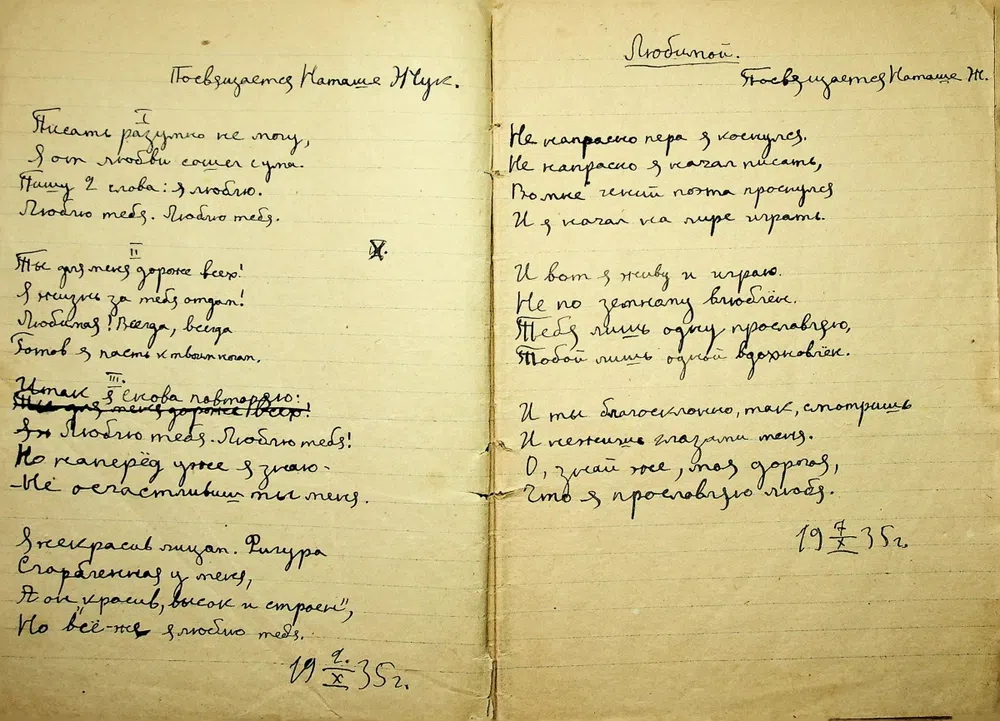 Посвящается Наташе Жук.
I
Писать разумно не могу,
Я от любви сошел с ума.
Пишу 2 слова: я люблю.
Люблю тебя. Люблю тебя.
II
Ты для меня дороже всех!
Я жизнь за тебя отдам!
Любимая! Всегда, всегда
Готов я пасть к твоим ногам.
III.
Итак я снова повторяю:
Ты для меня дороже всех!
Люблю тебя. Люблю тебя!
Но наперёд уже я знаю-
-Не осчастливиш ты меня.
Я некрасив лицом. Фигура
Сгорбленная у меня,
А он "красив, высок и строен",
Но всё-же я люблю тебя.
19 2./X 35г.
Любимой.
Посвящается Наташе Ж.
Не напрасно пера я коснулся.
Не напрасно я начал писать,
Во мне гений поэта проснулся
И я начал на лире играть.
И вот я живу и играю.
Не по земному влюблён.
Тебя лишь одну прославляю,
Тобой лишь одной вдохновлён.
И ты благосклонно, так, смотришь
И нежишь глазами меня.
О, знай же, моя дорогая,
Что я прославляю любя.
19 7/X 35г.